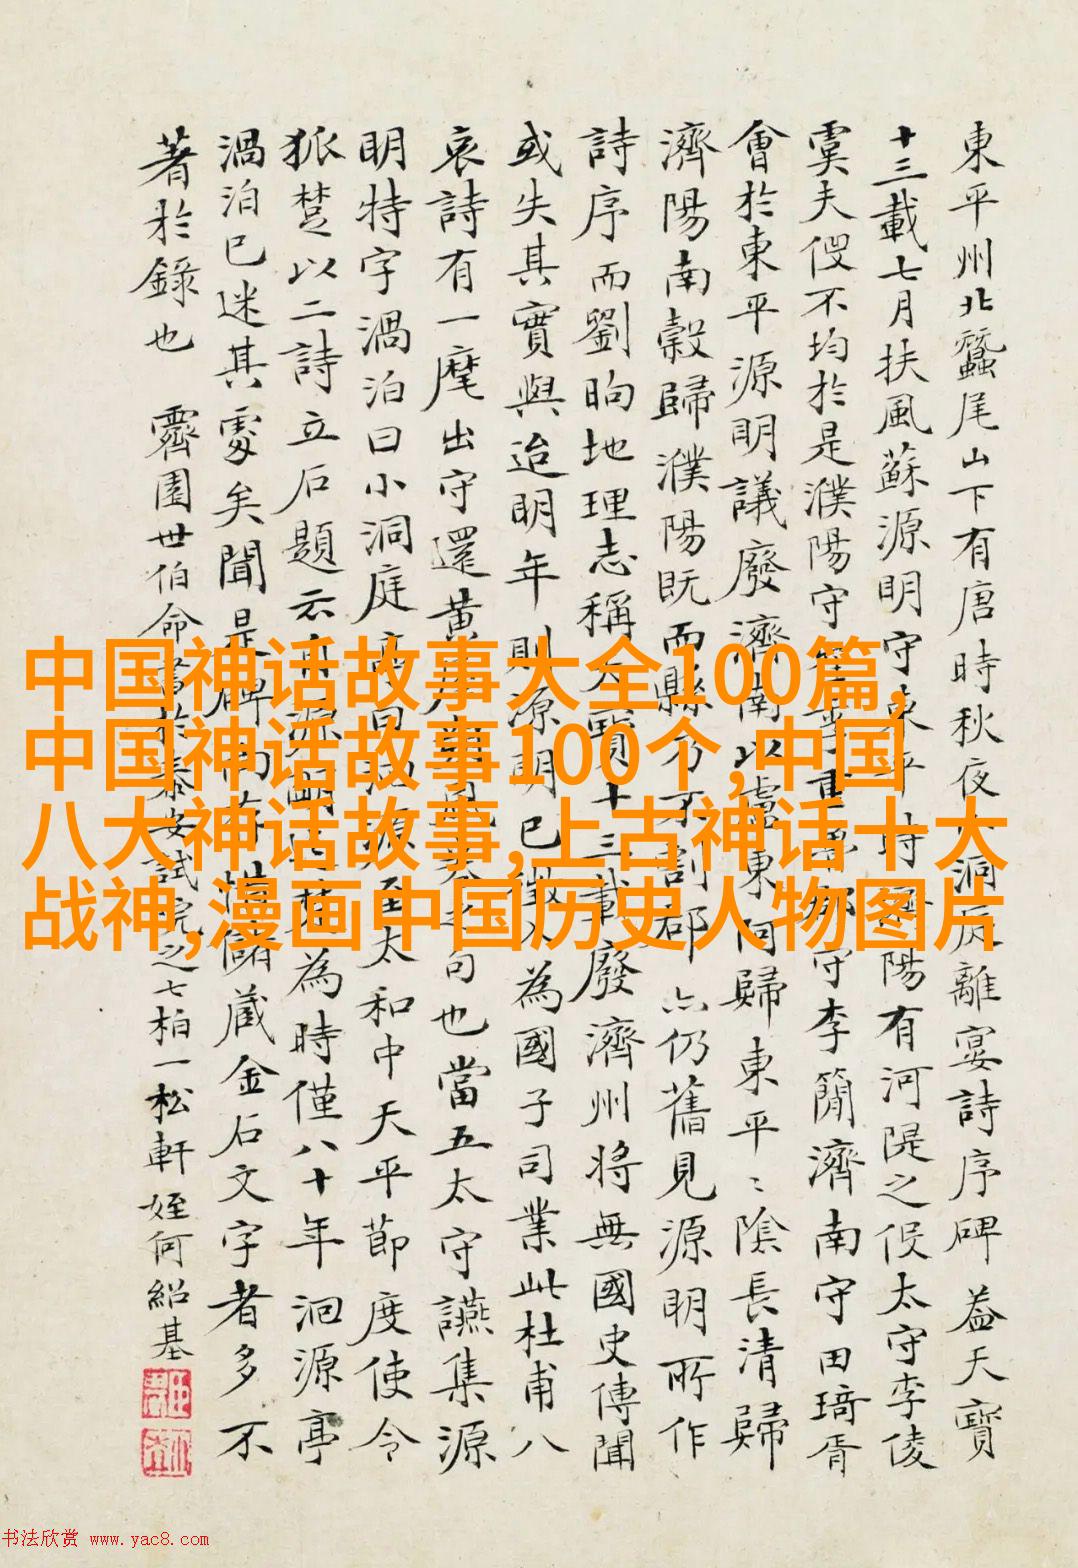 東平州北蠶尾山下有唐時秋夜小洞庭離宴詩序碑蓋天寶
十三載七月扶風蘇源明守東平時濟陽有河隄之役太守李倰
虞夫役不均於是濮陽守守李簡濟南守田琦胥
會於東平源明議廢濟南以盧東阿歸東平〻陰長清歸
濟陽南穀歸濮陽既而縣分割郡亦仍舊見源明所作
詩序而劉昫地理志稱天寶十三載廢濟州將無國史傳聞
或失其實與迨明年則源明已徵為國子司業此杜甫八
哀詩有一麾出守還黃句也當五太守讌集源
明特字渦泊曰小洞庭至太和中天平節度使令
狐楚以二詩立石題云源為時僅八十年洄源亭
渦泊已迷其處矣聞是碑尚存儲藏金石文字者多不
著於錄也 霽園世伯命書於泰安試院之七柏一松軒 姪何紹基
中国神话故事大全100篇,
中国神话故事100个,中国
八大神话故事,上古神话十大
战神,漫画中国历史人物图片
书法欣赏 www.yac8.com